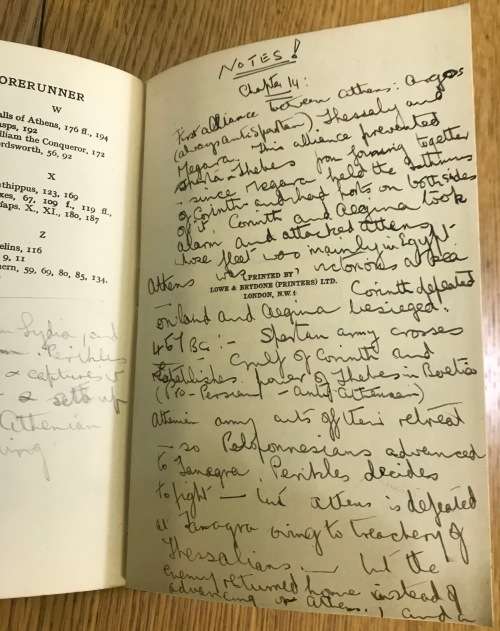 ORERUNNER
W
alls of Athens, 176 ff., 194
asps, 192
illiam the Conqueror, 172
ordsworth, 56, 92
X
nthippus, 123, 169
xes, 67, 109 f., 119 ff.,
faps. X., XI., 180, 187
Z
elins, 116
9, 11
hern, 59, 69, 80, 85, 134.
Lydia, and
Perikles
& captures
& sets up
Athenian
NOTES!
Chapter 14:
First alliance between Athens: Argos
(always anti-Spartan) Thessaly and
Megara. This alliance prevented
Sparta - Thebes from joining together
- since Megara held the Isthmus
of Corinth and had ports on both sides
of it. Corinth and Aegina took
alarm and attacked Athens
whose fleet was mainly in Egypt
Athens was victorious at sea
PRINTED BY
LOWE & BRYDONE (PRINTERS) LTD.
LONDON, N.W.1
Corinth defeated
on land and Aegina besieged.
457 BC:- Spartan army crosses
Gulf of Corinth and
establishes power of Thebes in Boeotia
(Pro-Persian - anti-Athenian)
Athenian army cuts off their retreat
- so Peloponnesians advanced
to Tanagra. Perikles decides
to fight - but Athens is defeated
at Tanagra owing to treachery of
Thessalians. - but the
enemy returned home instead of
advancing on Athens, and a